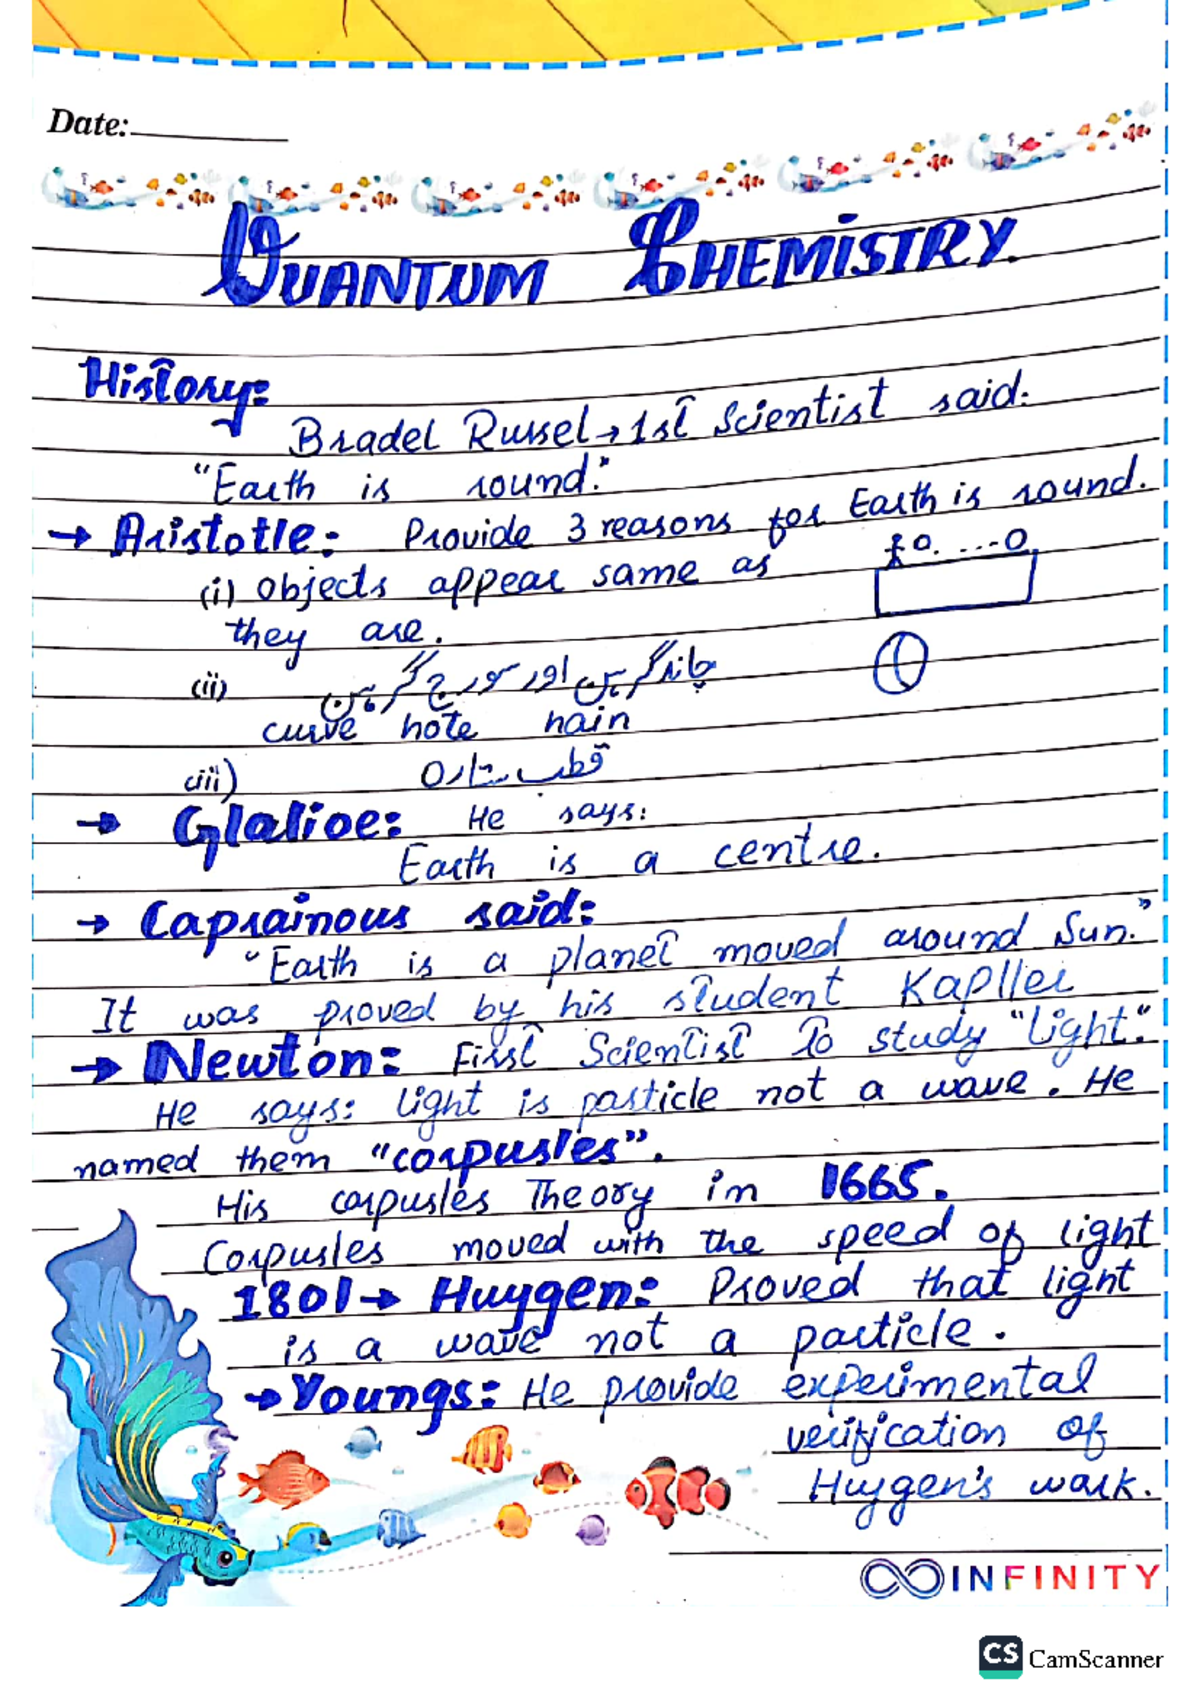 Date:
QUANTUM CHEMISTRY.
History:
Bradel Russel → 1st Scientist said:
"Earth is round."
→ Aristotle: Provide 3 reasons for Earth is round.
(i) Objects appear same as
they are.
(ii) چاند گرہن اور سورج گرہن
curve hote hain
(iii) قطب ستارہ
→ Glalioe: He says:
Earth is a centre.
→ Caprainous said:
"Earth is a planet moved around Sun."
It was proved by his student Kapller
→ Newton: First Scientist To study "light".
He says: light is particle not a wave. He
named them "corpusles".
His corpusles Theory in 1665.
Corpusles moved with the speed of light
1801 → Huygen: Proved that light
is a wave not a particle.
→ Youngs: He provide experimental
verification of
Huygen's work.
INFINITY
CS CamScanner